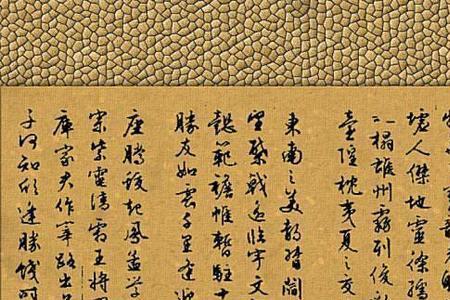 墟人傑地靈徐孺
之榻雄州霧列俊
臺隍枕夷夏之交
東南之美都督閻
望棨戟遙臨宇文
懿範襜帷暫駐十
勝友如雲千里逢
座騰蛟起鳳孟學
宗紫電清霜王將
庫家君作宰路出
子何知躬逢勝餞時